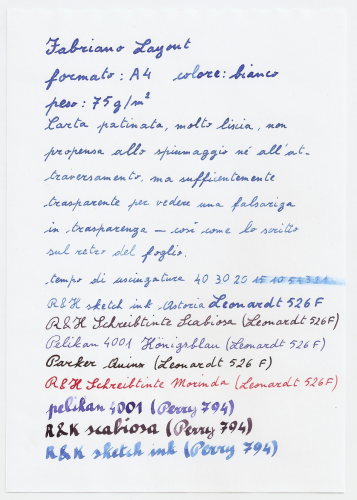 Fabriano Layout
formato: A4 colore: bianco
peso: 75g/m²
Carta patinata, molto liscia, non
propensa allo spiumaggio né all'at-
traversamento, ma sufficientemente
trasparente per vedere una falsariga
in trasparenza — così come lo scritto
sul retro del foglio.
tempo di asciugatura 40 30 20 15 10 5 4 3 2 1
R&K sketch ink Astoria Leonardt 526F
R&K Schreibtinte Scabiosa (Leonardt 526F)
Pelikan 4001 Königsblau (Leonardt 526F)
Parker Quink (Leonardt 526 F)
R&K Schreibtinte Morinda (Leonardt 526F)
pelikan 4001 (Perry 794)
R&K scabiosa (Perry 794)
R&K sketch ink (Perry 794)